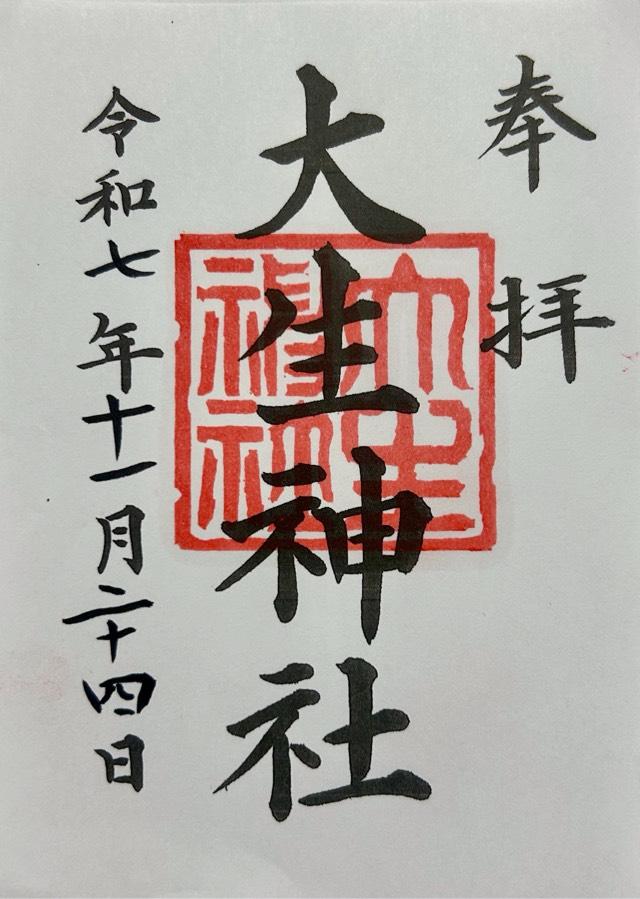 奉拝
大生神社
令和七年十一月二十四日